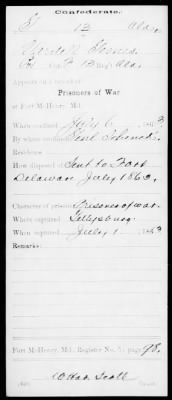 Confederate.
13 Ala.
Pvt., Co. F, 13 Reg't Ala.
Appears on a
Prisoners of War
at Fort McHenry, Md.
When confined July 6, 1863
By whom confined Genl Schenck
Residence
How disposed of Sent to Fort
Delaware July 1863.
Character of prisoner Prisoner of war.
Where captured Gettysburg
When captured July 1, 1863
Remarks:
Fort McHenry, Md., Register No. ; page 98.
Scott